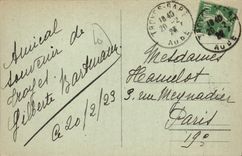 Amical
souvenir de
Troyes.
Gilberte Bartmann
Ce 20/2/23
TROYES-GARE
18 40
20 - 2
AUBE
18 40
AUBE
Mesdames
Hamelot
3. rue Meynadier
Paris
19e